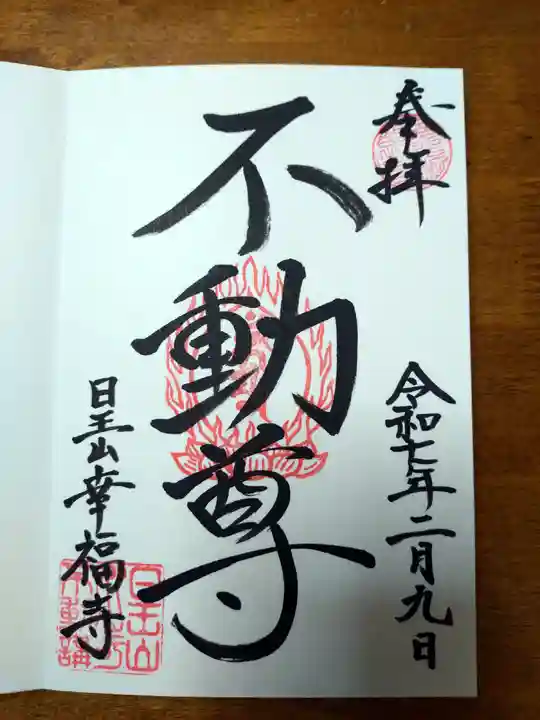 奉拝
令和七年二月九日
不動尊
日王山幸福寺
日王山
不動講